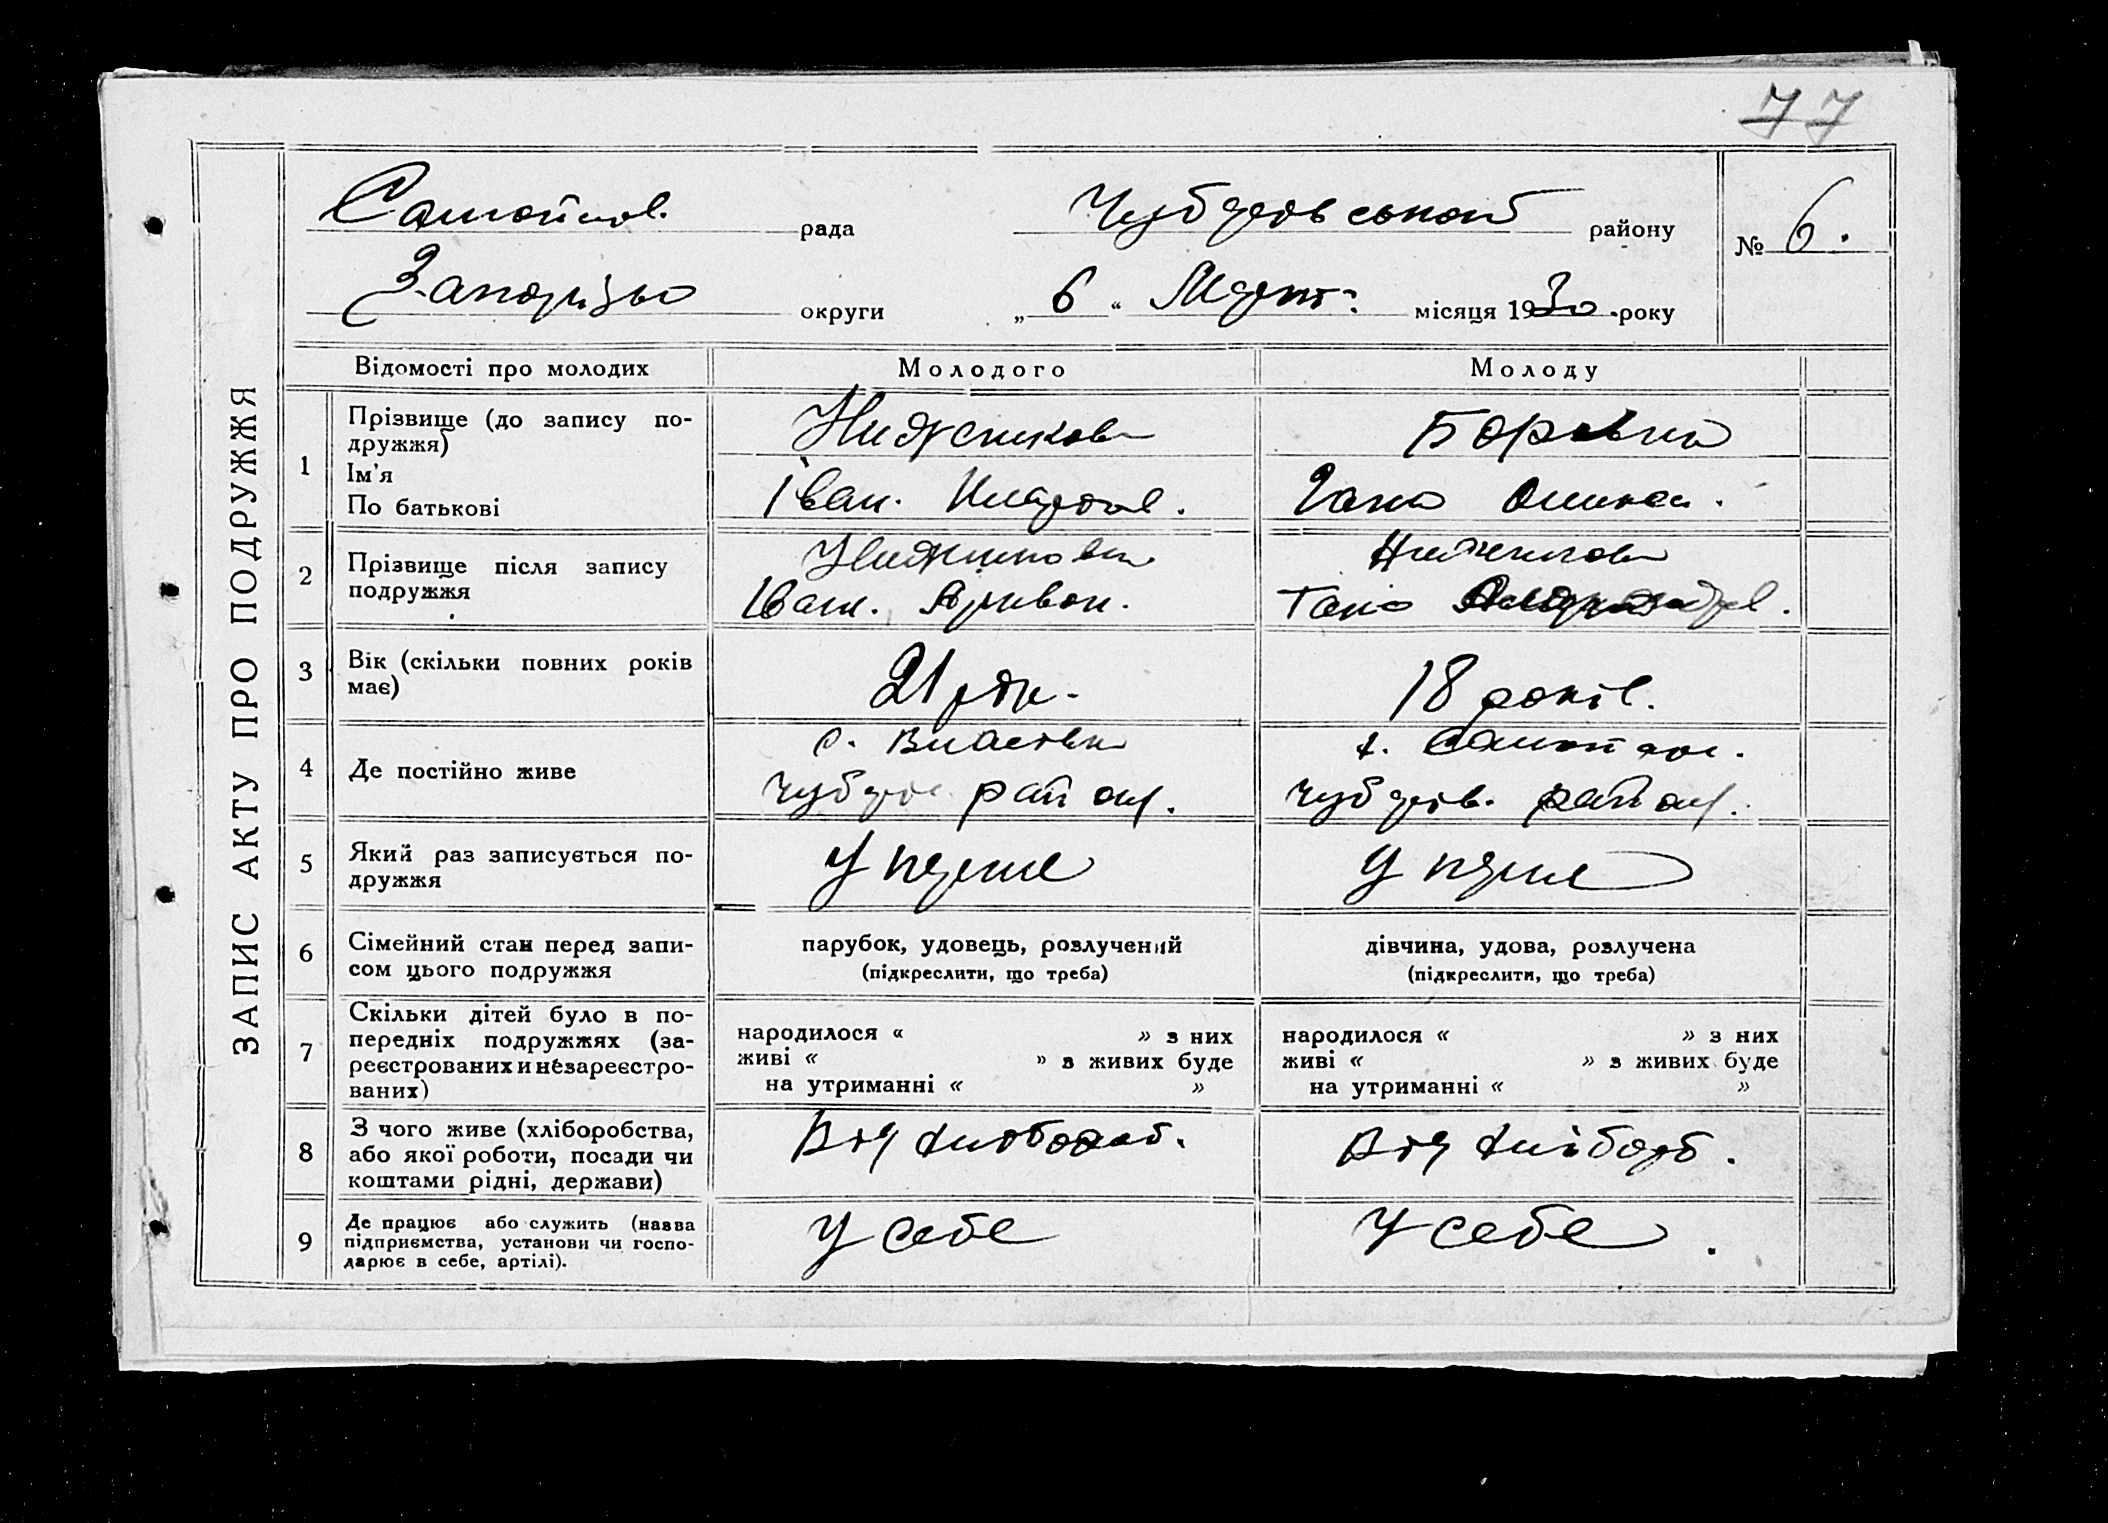 77
рада
Чубарівської району
№ 6.
Запорізько округи
„ 6 “ Март. місяця 1930 року
ЗАПИС АКТУ ПРО ПОДРУЖЖЯ
Відомості про молодих
Молодого
Молоду
1
Прізвище (до запису по-
дружжя)
Ім'я
По батькові
Іван.
2
Прізвище після запису
подружжя
Іван.
3
Вік (скільки повних років
має)
21 рік.
18 років.
4
Де постійно живе
с.
Чубарів. район.
с.
Чубарів. район.
5
Який раз записується по-
дружжя
У перше
У перше
6
Сімейний стан перед запи-
сом цього подружжя
парубок, удовець, розлучений
(підкреслити, що треба)
дівчина, удова, розлучена
(підкреслити, що треба)
7
Скільки дітей було в по-
передніх подружжях (за-
реєстрованих и незареєстро-
ваних)
народилося « » з них
живі « » з живих буде
на утриманні « »
народилося « » з них
живі « » з живих буде
на утриманні « »
8
З чого живе (хліборобства,
або якої роботи, посади чи
коштами рідні, держави)
Від хлібороб.
Від хлібороб.
9
Де працює або служить (назва
підприємства, установи чи госпо-
дарює в себе, артілі).
У себе
У себе.